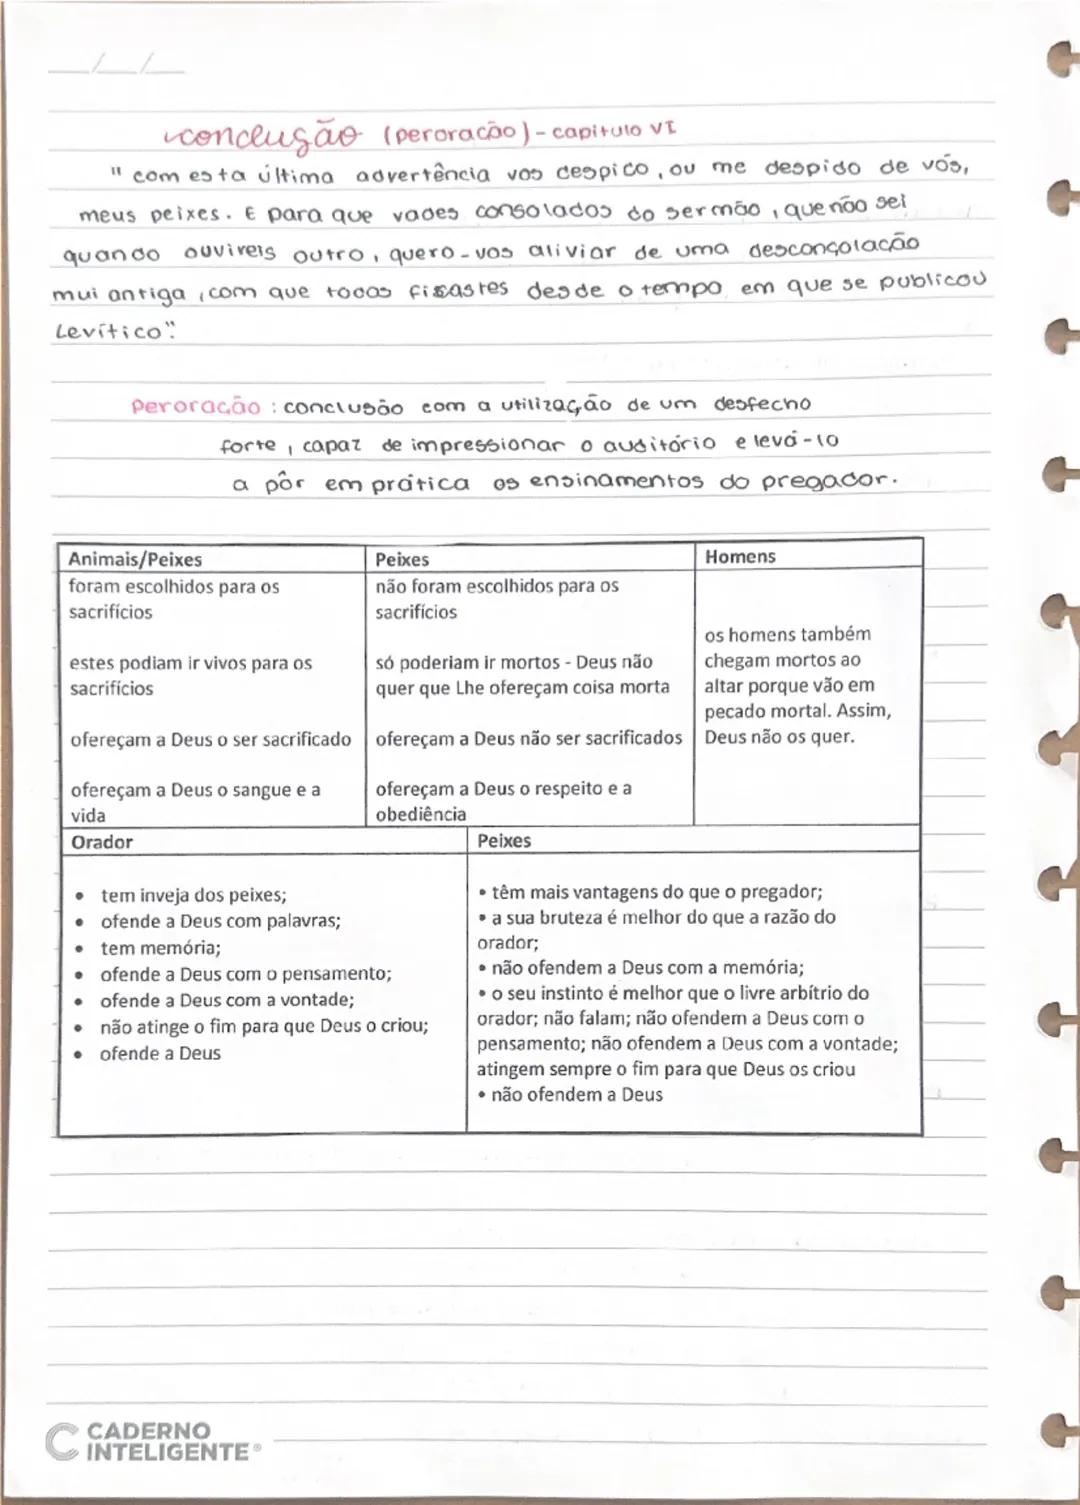 __/__/__
conclusão (peroração) - capitulo VI
" com esta última advertência vos despido, ou me despido de vós,
meus peixes. E para que vades consolados do sermão, que não sei
quando ouvireis outro, quero-vos aliviar de uma desconsolação
mui antiga, com que todos ficastes desde o tempo em que se publicou
Levítico".
Peroração: conclusão com a utilização de um desfecho
forte, capaz de impressionar o auditório e levá-lo
a pôr em prática os ensinamentos do pregador.
Animais/Peixes
foram escolhidos para os
sacrifícios
estes podiam ir vivos para os
sacrifícios
ofereçam a Deus o ser sacrificado
ofereçam a Deus o sangue e a
vida
Peixes
não foram escolhidos para os
sacrifícios
só poderiam ir mortos - Deus não
quer que Lhe ofereçam coisa morta
ofereçam a Deus não ser sacrificados
ofereçam a Deus o respeito e a
obediência
Homens
os homens também
chegam mortos ao
altar porque vão em
pecado mortal. Assim,
Deus não os quer.
Orador
• tem inveja dos peixes;
• ofende a Deus com palavras;
• tem memória;
• ofende a Deus com o pensamento;
• ofende a Deus com a vontade;
• não atinge o fim para que Deus o criou;
• ofende a Deus
Peixes
• têm mais vantagens do que o pregador;
• a sua bruteza é melhor do que a razão do
orador;
• não ofendem a Deus com a memória;
• o seu instinto é melhor que o livre arbítrio do
orador; não falam; não ofendem a Deus com o
pensamento; não ofendem a Deus com a vontade;
atingem sempre o fim para que Deus os criou
• não ofendem a Deus
CADERNO
INTELIGENTE®